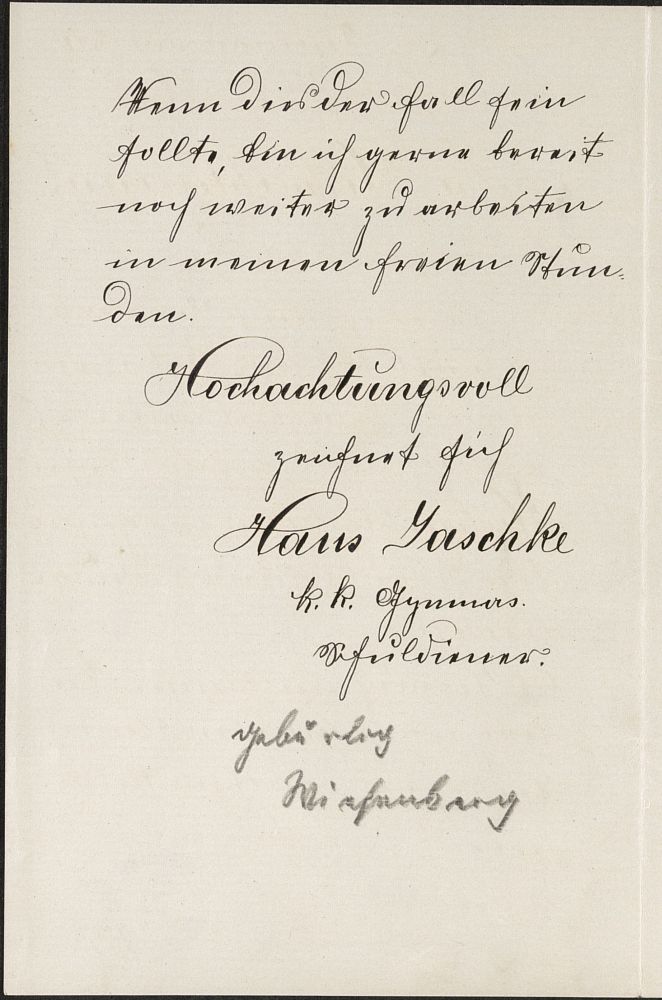 Wenn dies der Fall sein
sollte, bin ich gerne bereit
noch weiter zu arbeiten
in meinen freien Stun-
den.
Hochachtungsvoll
zeichnet sich
Hans Jaschke
k. k. Gymnas.
Schuldiener.
gebürtig
Wiesenberg